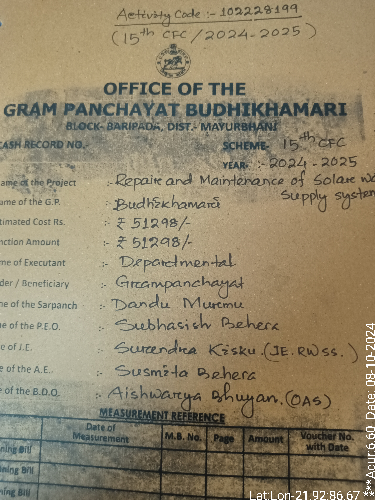 Activity Code :- 102228199
(15th CFC /2024-2025)
OFFICE OF THE
GRAM PANCHAYAT BUDHIKHAMARI
BLOCK- BARIPADA, DIST.- MAYURBHANJ
CASH RECORD NO.- SCHEME- 15th CFC
YEAR- :- 2024 - 2025
ame of the Project :- Repaire and Maintenance of Solare wa
Supply system
ame of the G.P. :- Budhikhamari
timated Cost Rs. :- ₹ 51298/-
nction Amount :- ₹ 51298/-
me of Executant :- Departmental
der / Beneficiary :- Grampanchayat
ne of the Sarpanch :- Dandu Murmu
e of the P.E.O. :- Subhasish Behera
e of J.E. :- Surendra Kisku.(JE.RWSS.)
e of the A.E.. :- Susmita Behera
e of the B.D.O. :- Aishwarya Bhuyan.(OAS)
MEASUREMENT REFERENCE
Date of Measurement M.B. No. Page Amount Voucher No. with Date
ning Bill
ning Bill
ing Bill
Lat:Lon-21.92:86.67***Acur:6.60 Date: 08-10-2024